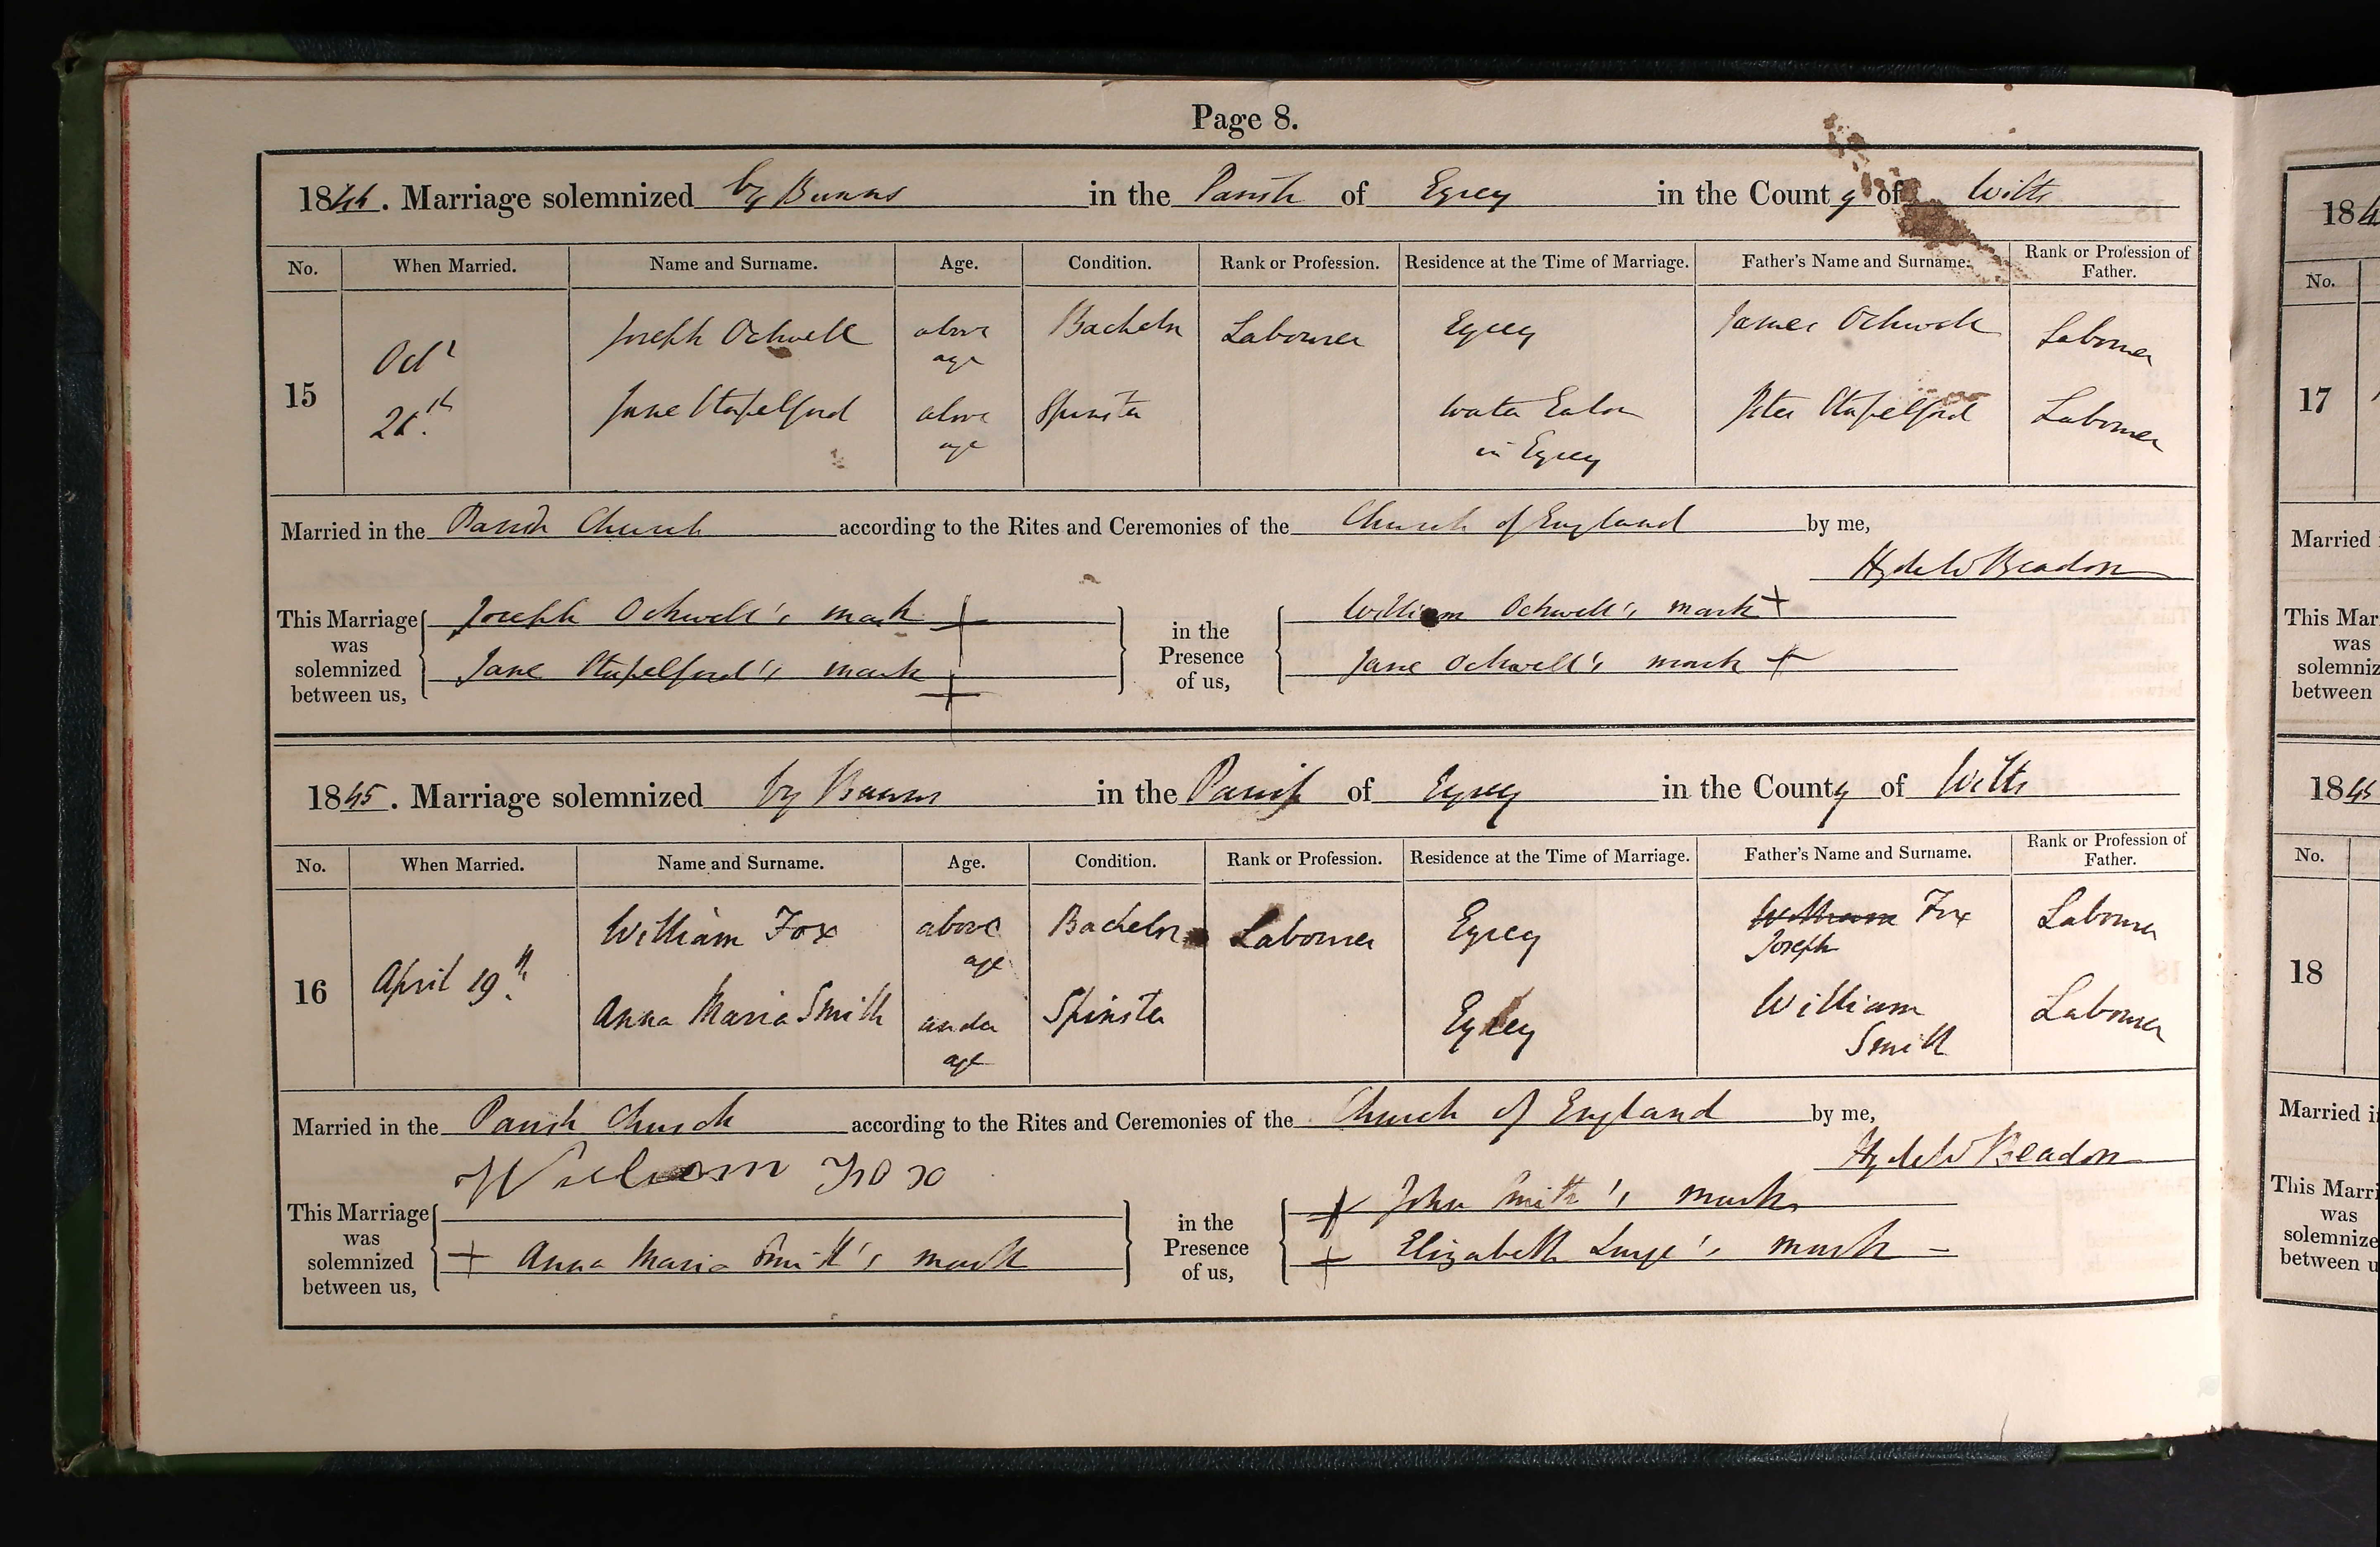 Page 8.
1844. Marriage solemnized by Banns in the Parish of Eysey in the County of Wilts
No. When Married. Name and Surname. Age. Condition. Rank or Profession. Residence at the Time of Marriage. Father's Name and Surname. Rank or Profession of Father.
15 Octr Joseph Ockwell above age Bachelor Labourer Eysey James Ockwell Labourer
Jane Stapelford above age Spinster Water Eaton in Eysey Peter Stapelford Labourer
Married in the Parish Church according to the Rites and Ceremonies of the Church of England by me,
Hyde W Beadon
This Marriage was solemnized between us, Joseph Ockwell's mark +
Jane Stapelford's mark +
in the Presence of us, William Ockwell's mark +
Jane Ockwell's mark +
1845. Marriage solemnized by Banns in the Parish of Eysey in the County of Wilts
No. When Married. Name and Surname. Age. Condition. Rank or Profession. Residence at the Time of Marriage. Father's Name and Surname. Rank or Profession of Father.
16 April 19th William Fox above age Bachelor Labourer Eysey William Fox Joseph Labourer
Anna Maria Smith under age Spinster Eysey William Smith Labourer
Married in the Parish Church according to the Rites and Ceremonies of the Church of England by me,
Hyde W Beadon
This Marriage was solemnized between us, William Fox
+ Anna Maria Smith's mark
in the Presence of us, + John Smith's mark
+ Elizabeth mark
184
No.
17
Married
This Mar
was
solemniz
between
1845
No.
18
Married i
This Marri
was
solemnize
between u